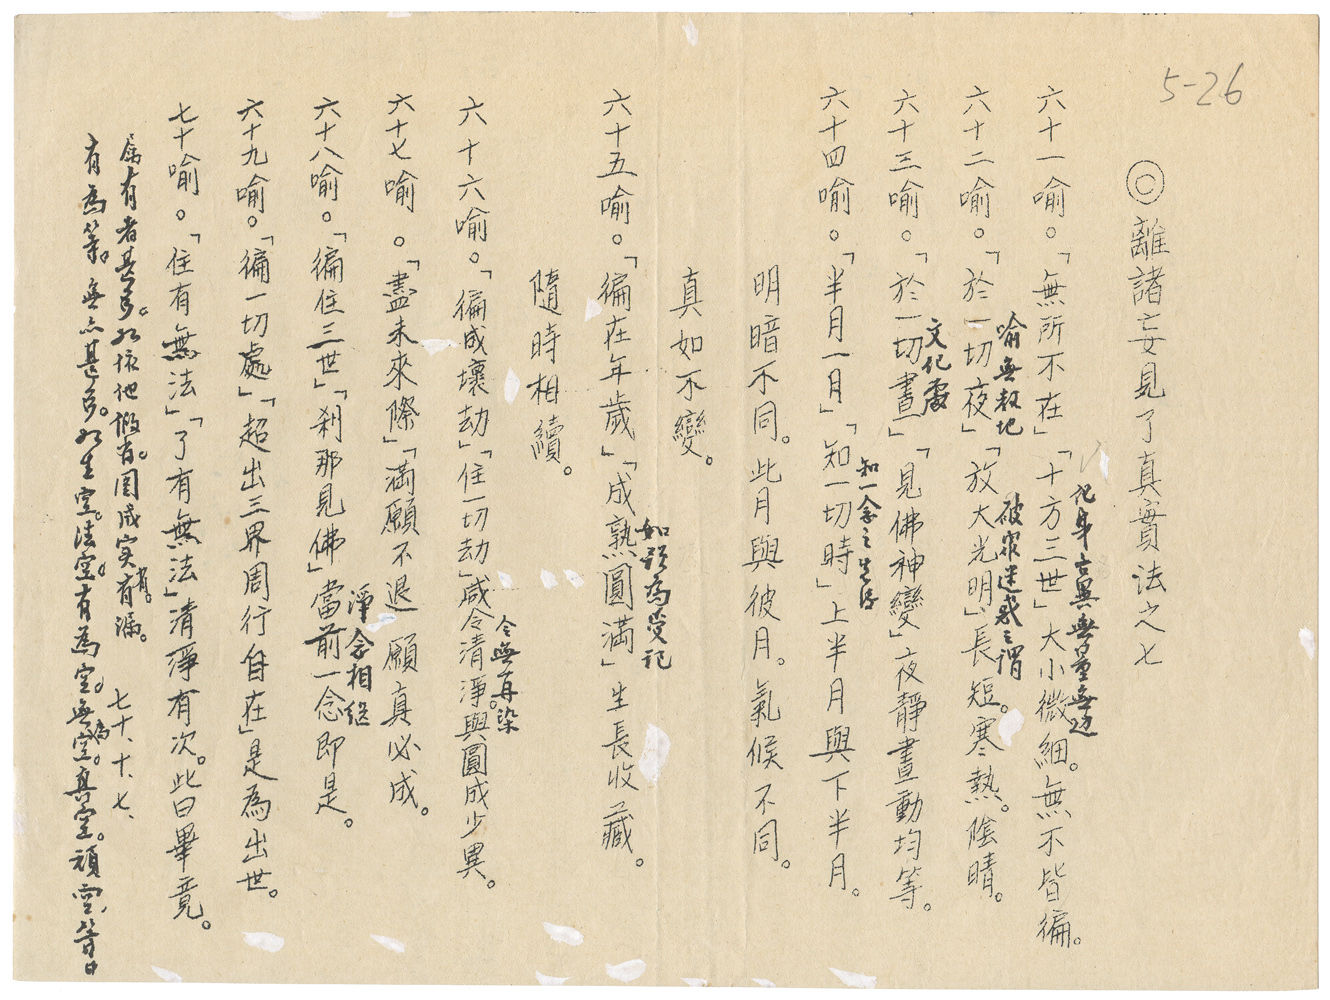 5-26
◎離諸妄見了真實法之七
六十一喻。「無所不在」「十方三世」大小微細。無不皆徧。
化身言異無量無边
六十二喻。「於一切夜」「放大光明」長短。寒熱。陰晴。
喻無教地
破眾迷惑之謂
六十三喻。「於一切晝」「見佛神變」夜靜晝動均等。
文化處
六十四喻。「半月一月」「知一切時」上半月與下半月。
知一念之生
明暗不同。此月與彼月。氣候不同。
真如不變。
六十五喻。「徧在年歲」「成熟圓滿」生長收藏。
如說為受記
隨時相續。
六十六喻。「徧成壞劫」「住一切劫」咸令清淨。與圓成少異。
令無再染
六十七喻。「盡未來際」「滿願不退」願真必成。
六十八喻。「徧住三世」「剎那見佛」當前一念即是。
淨念相繼
六十九喻。「徧一切處」「超出三界周行自在」是為出世。
七十喻。「住有無法」「了有無法」清淨有次。此曰畢竟。
屬有者甚多。如依他假有。圓成实有。有漏。 七十、十、七、
有為等。無亦甚多。如生空。法空。有為空。無為空。真空。頑空、等曰